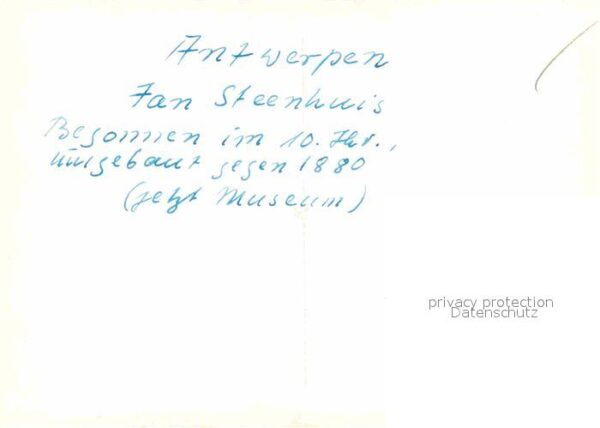 Antwerpen
Jan Steenhuis
Begonnen im 10. Jhr.,
umgebaut gegen 1880
(jetzt Museum)
privacy protection
Datenschutz